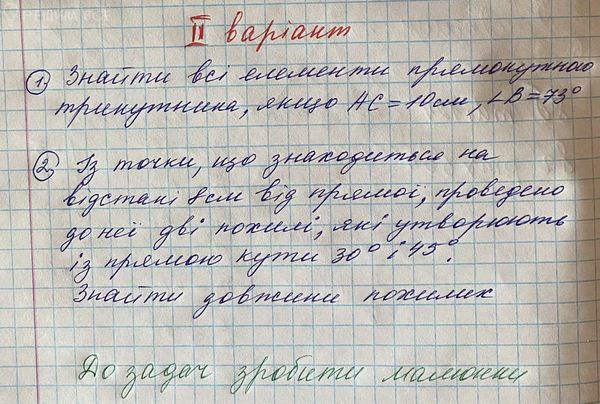 II варіант
1. Знайти всі елементи прямокутного
трикутника, якщо AC = 10см, ∠B = 73°
2. Із точки, що знаходиться на
відстані 8см від прямої, проведено
до неї дві похилі, які утворюють
із прямою кути 30° і 45°.
Знайти довжини похилих
До задач зробити малюнки